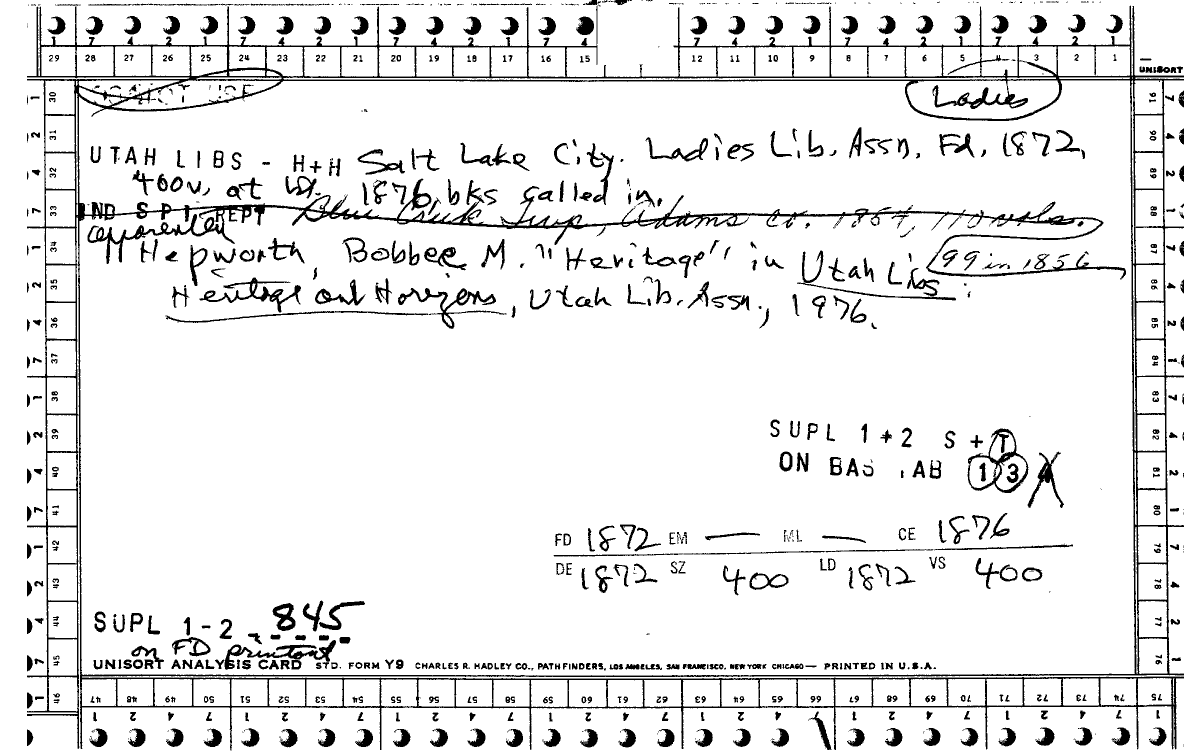 29 28 27 26 25 24 23 22 21 20 19 18 17 16 15 12 11 10 9 8 7 6 5 4 3 2 1
UNISORT
DO NOT USE
Ladies
UTAH LIBS - H+H Salt Lake City. Ladies Lib. Assn. Fd. 1872,
400v. at 1876, bks called in,
IND SPI REPT Blue Creek Twp, Adams co. 1854, 110 vols.
apparently
" Hepworth, Bobbee M. "Heritage" in Utah Libs :
99 in 1856
Heritage and Horizons, Utah Lib. Assn., 1976.
SUPL 1+2 S+T
ON BAS AB 1 3
FD 1872 EM — ML — CE 1876
DE 1872 SZ 400 LD 1872 VS 400
SUPL 1-2 - 845
on FD printout
UNISORT ANALYSIS CARD STD. FORM Y9 CHARLES R. HADLEY CO., PATHFINDERS, LOS ANGELES, SAN FRANCISCO, NEW YORK CHICAGO — PRINTED IN U.S.A.
47 48 49 50 51 52 53 54 55 56 57 58 59 60 61 62 63 64 65 66 67 68 69 70 71 72 73 74 75